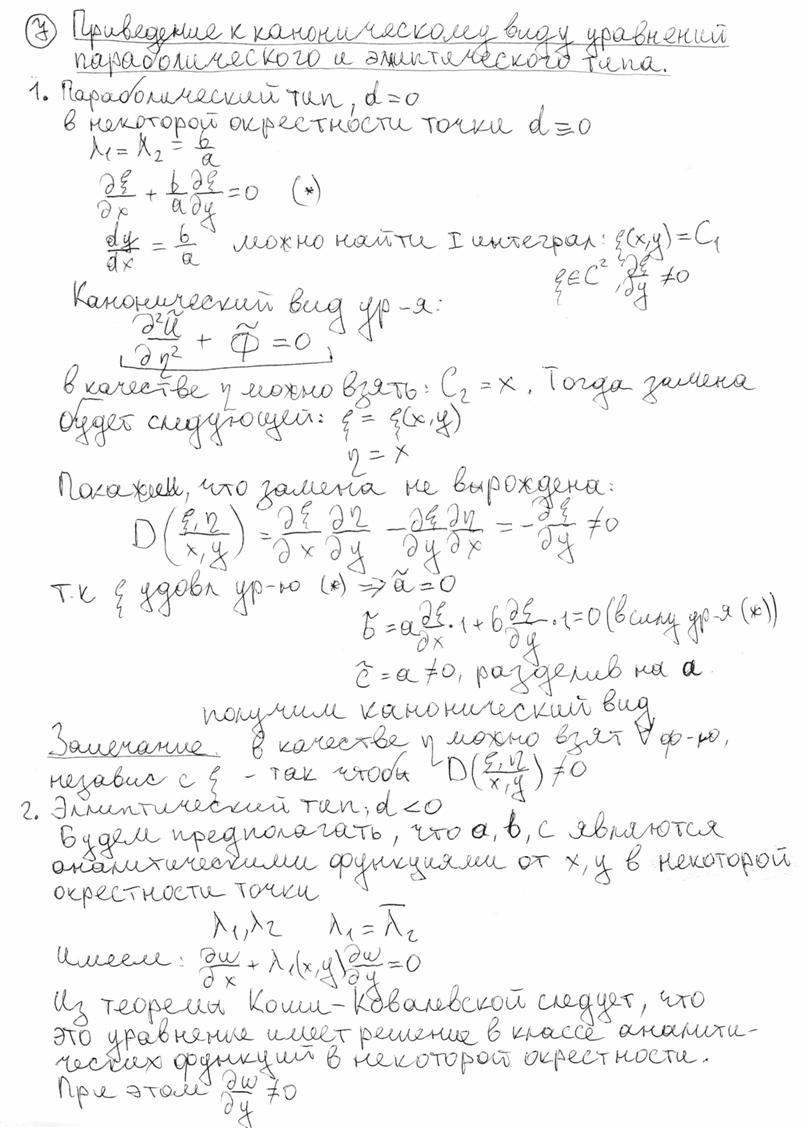 ⑦ Приведение к каноническому виду уравнений
параболического и элиптического типа.
1. Параболический тип, d=0
в некоторой окрестности точки d≡0
λ₁ = λ₂ = b/a
∂ξ/∂x + b/a ∂ξ/∂y = 0 (*)
dy/dx = b/a можно найти I интеграл: ξ(x,y) = C₁
ξ∈C², ∂ξ/∂y ≠0
Канонический вид ур-я:
∂²ũ/∂η² + Φ̃ = 0
в качестве η можно взять: C₂ = x. Тогда замена
будет следующей: ξ = ξ(x,y)
η = x
Покажем, что замена не вырождена:
D(ξ,η / x,y) = ∂ξ/∂x ∂η/∂y - ∂ξ/∂y ∂η/∂x = -∂ξ/∂y ≠0
т.к ξ удовл ур-ю (*) => ã = 0
b̃ = a ∂ξ/∂x · 1 + b ∂ξ/∂y · 1 = 0 (в силу ур-я (*))
c̃ = a ≠0, разделив на a
получим канонический вид
Замечание. в качестве η можно взят ∀ ф-ю,
независ с ξ - так чтобы D(ξ,η / x,y) ≠0
2. Эллиптический тип, d<0
Будем предполагать, что a, b, c являются
аналитическими функциями от x, y в некоторой
окрестности точки
λ₁, λ₂ λ₁ = λ̅₂
Имеем: ∂w/∂x + λ₁(x,y) ∂w/∂y = 0
Из теоремы Коши-Ковалевской следует, что
это уравнение имеет решение в классе аналити-
ческих функций в некоторой окрестности.
При этом ∂w/∂y ≠0